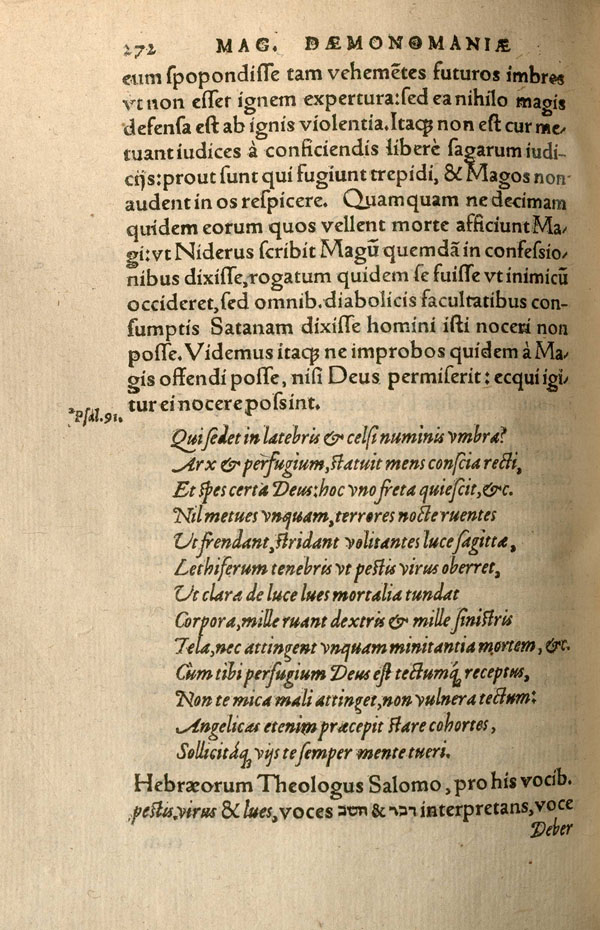 272 MAG. DÆMONOMANIÆ
eum spopondisse tam vehemẽtes futuros imbres
vt non esset ignem expertura: sed ea nihilo magis
defensa est ab ignis violentia. Itaq; non est cur me-
tuant iudices à conficiendis liberè sagarum iudi-
cijs: prout sunt qui fugiunt trepidi, & Magos non
audent in os respicere. Quamquam ne decimam
quidem eorum quos vellent morte afficiunt Ma-
gi: vt Niderus scribit Magũ quemdã in confessio-
nibus dixisse, rogatum quidem se fuisse vt inimicũ
occideret, sed omnib. diabolicis facultatibus con-
sumptis Satanam dixisse homini isti noceri non
posse. Videmus itaq; ne improbos quidem à Ma-
gis offendi posse, nisi Deus permiserit: ecqui igi-
tur ei nocere possint.
ᵃPsal. 91.
Qui sedet in latebris & celsi numinis vmbra?
Arx & perfugium, statuit mens conscia recti,
Et spes certa Deus: hoc vno freta quiescit, &c.
Nil metues vnquam, terrores nocte ruentes
Ut frendant, stridant volitantes luce sagittæ,
Lethiferum tenebris vt pestis virus oberret,
Ut clara de luce lues mortalia tundat
Corpora, mille ruant dextris & mille sinistris
Tela, nec attingent vnquam minitantia mortem, &c.
Cùm tibi perfugium Deus est tectumq; receptus,
Non te mica mali attinget, non vulnera tectum:
Angelicas etenim præcepit stare cohortes,
Sollicitáq; vijs te semper mente tueri.
Hebræorum Theologus Salomo, pro his vocib.
pestis virus & lues, voces קטב & דבר interpretans, voce
Deber